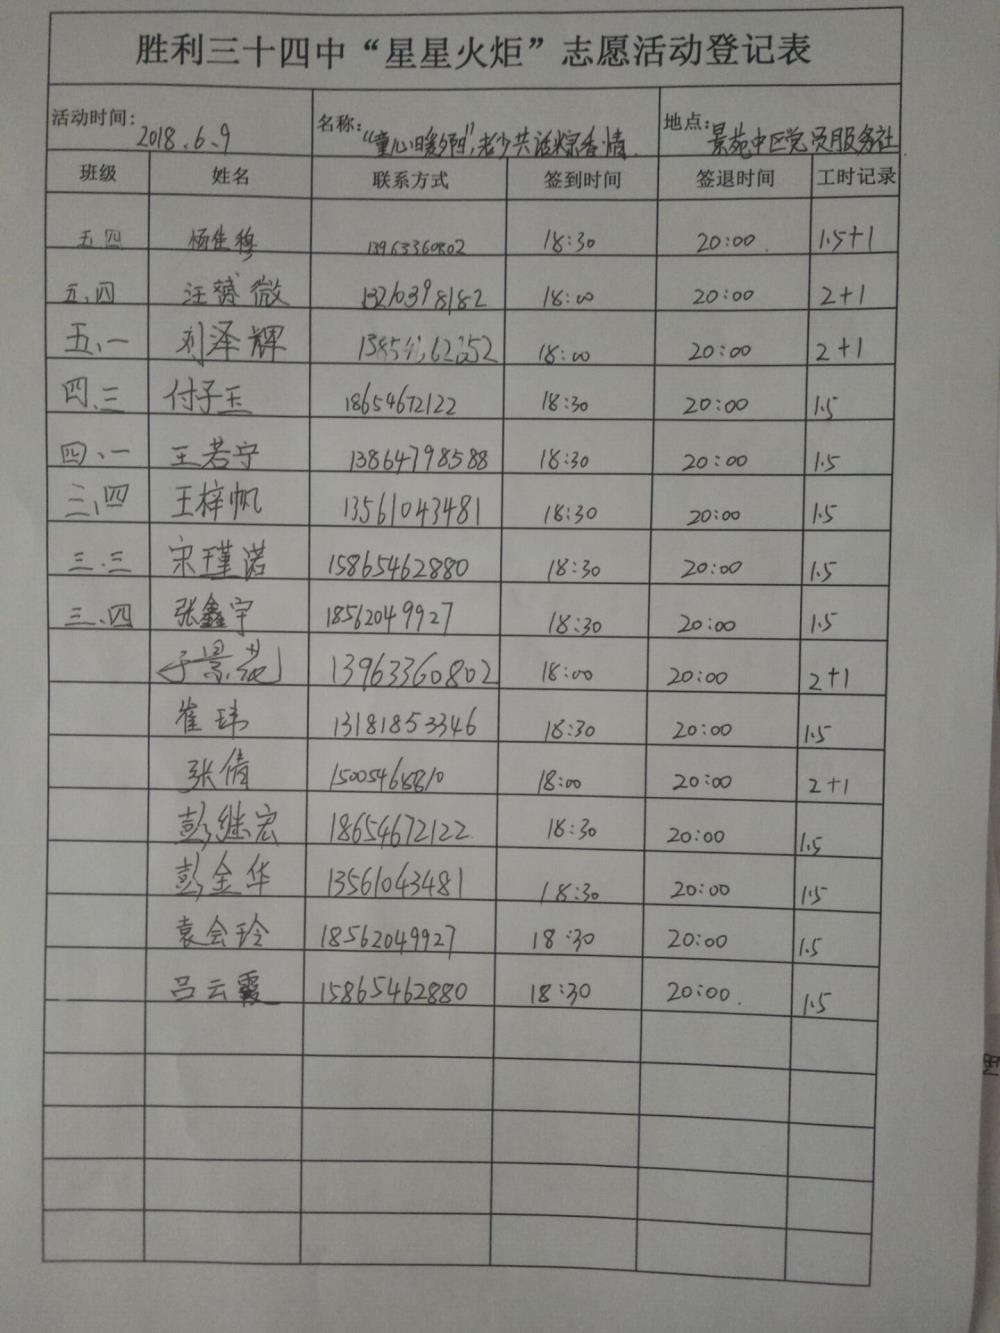 胜利三十四中“星星火炬”志愿活动登记表
活动时间: 2018.6.9 名称: “童心暖夕阳”,老少共话粽香情 地点: 景苑中区党员服务社
班级 姓名 联系方式 签到时间 签退时间 工时记录
五.四 杨生穆 13963360802 18:30 20:00 1.5+1
五.四 汪赟薇 13210398182 18:00 20:00 2+1
五.一 刘泽辉 18:00 20:00 2+1
四.三 付子玉 18654672122 18:30 20:00 1.5
四.一 王若宁 13864798588 18:30 20:00 1.5
三.四 王梓帆 13561043481 18:30 20:00 1.5
三.三 宋瑾诺 15865462880 18:30 20:00 1.5
三.四 张鑫宇 18562049927 18:30 20:00 1.5
于景苑 13963360802 18:00 20:00 2+1
崔玮 13181853346 18:30 20:00 1.5
张倩 18:00 20:00 2+1
彭继宏 18654672122 18:30 20:00 1.5
彭金华 13561043481 18:30 20:00 1.5
袁会玲 18562049927 18:30 20:00 1.5
吕云霞 15865462880 18:30 20:00. 1.5